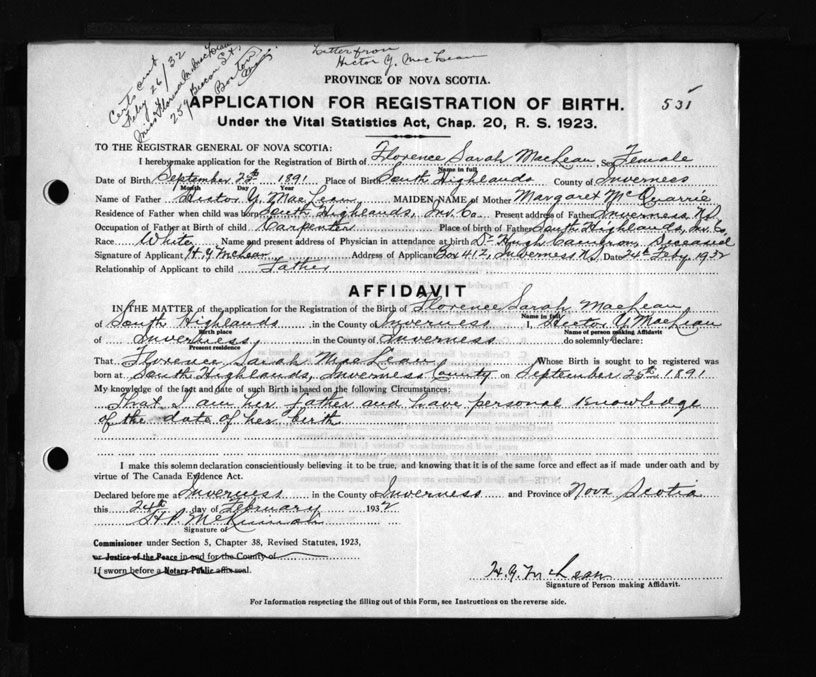 Certs sent
Feby 26/32
Miss Florence MacLean
259 Beacon St.,
Boston
Mass
Letter from
Hector Y. MacLean
PROVINCE OF NOVA SCOTIA.
APPLICATION FOR REGISTRATION OF BIRTH. 531
Under the Vital Statistics Act, Chap. 20, R. S. 1923.
TO THE REGISTRAR GENERAL OF NOVA SCOTIA:
I hereby make application for the Registration of Birth of Florence Sarah MacLean, Sex Female
Name in full
Date of Birth September 25th 1891 Place of Birth South Highlands County of Inverness
Month Day Year
Name of Father Hector Y. MacLean MAIDEN NAME of Mother Margaret McQuarrie
Residence of Father when child was born South Highlands, Inv. Co. Present address of Father Inverness, N.S.
Occupation of Father at Birth of child Carpenter Place of birth of Father South Highlands, Inv. Co.
Race White Name and present address of Physician in attendance at birth Dr Hugh Cameron, Deceased
Signature of Applicant H. Y. McLean Address of Applicant Box 412, Inverness N.S. Date 24th Feby. 1932
Relationship of Applicant to child Father
AFFIDAVIT
IN THE MATTER of the application for the Registration of the Birth of Florence Sarah MacLean
Name in full
of South Highlands in the County of Inverness I, Hector Y. MacLean
Birth place Name of person making Affidavit
of Inverness, in the County of Inverness do solemnly declare:
Present residence
That Florence Sarah MacLean Whose Birth is sought to be registered was
born at South Highlands, Inverness County on September 25th 1891
My knowledge of the fact and date of such Birth is based on the following Circumstances:
That I am her father and have personal knowledge
of the date of her birth
I make this solemn declaration conscientiously believing it to be true, and knowing that it is of the same force and effect as if made under oath and by
virtue of The Canada Evidence Act.
Declared before me at Inverness in the County of Inverness and Province of Nova Scotia
this 24th day of February 1932
Signature of
Commissioner under Section 5, Chapter 38, Revised Statutes, 1923,
or Justice of the Peace in and for the County of
If sworn before a Notary Public affix seal.
H. Y. McLean
Signature of Person making Affidavit.
For Information respecting the filling out of this Form, see Instructions on the reverse side.